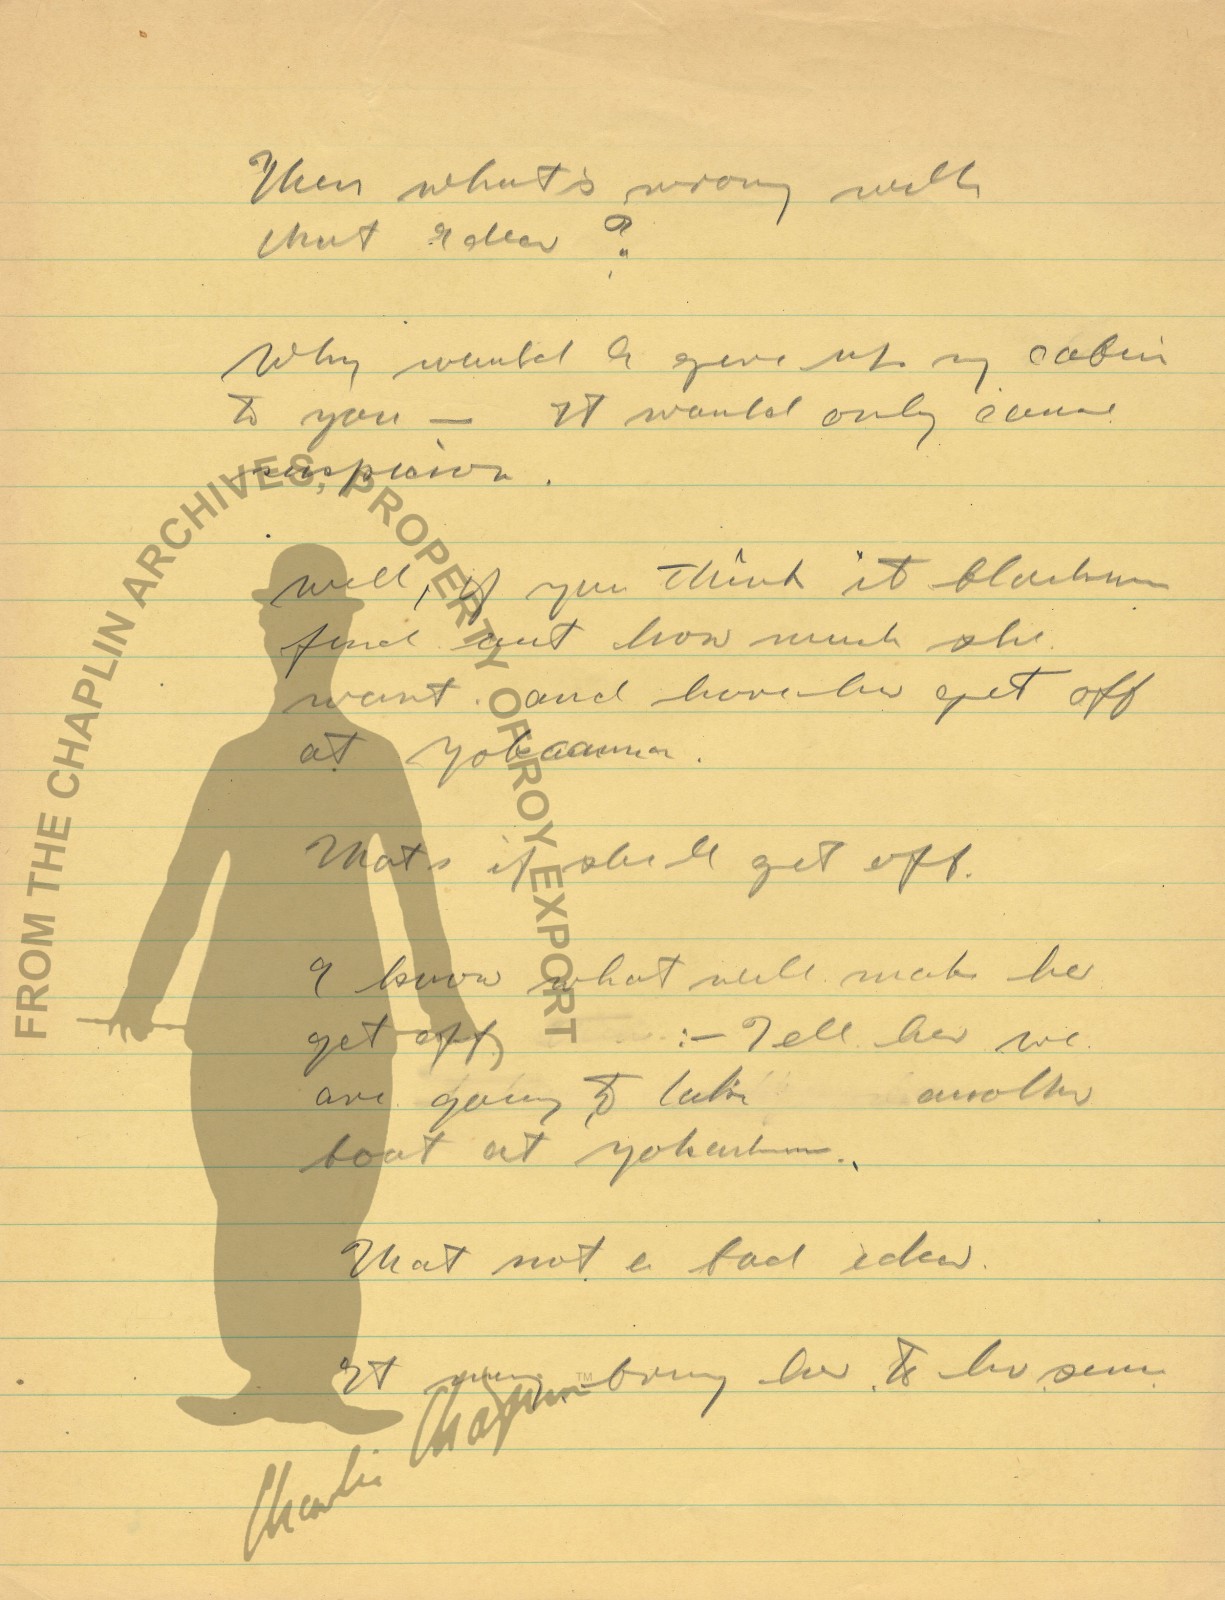 Then what's wrong with
that idea ?
Why would I give up my cabin
to you — It would only cause
suspicion.
well, if you think it blackmail
find out how much she
want. and have her get off
at Yokaama.
Thats if she'll get off.
I know what will make her
get off, :- Tell her we
are going to take another
boat at yokahama.
That not a bad idea.
It may bring her to her sense
FROM THE CHAPLIN ARCHIVES, PROPERTY OF ROY EXPORT
TM
Charlie Chaplin